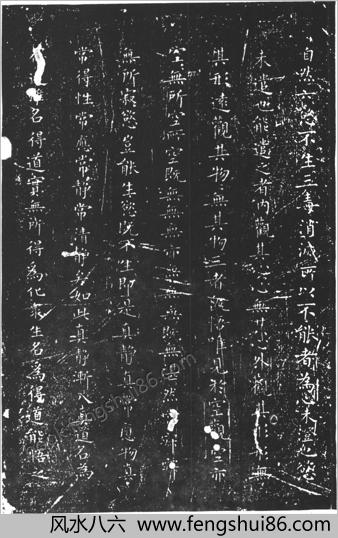 自然六慾不生三毒消滅所以不能者為心未澄也慾
未遣也能遣之者內觀其心心無其心外觀其形形無
其形遠觀其物物無其物三者既悟唯見於空觀空亦
空無所空所空既無無無亦無無無既無湛然常寂
無所寂慾豈能生慾既不生即是真靜真常應物真
常得性常應常靜常清靜矣如此真靜漸入真道名為
得道雖名得道實無所得為化眾生名為得道能悟之
fengshui86.com
风水八六 www.fengshui86.com